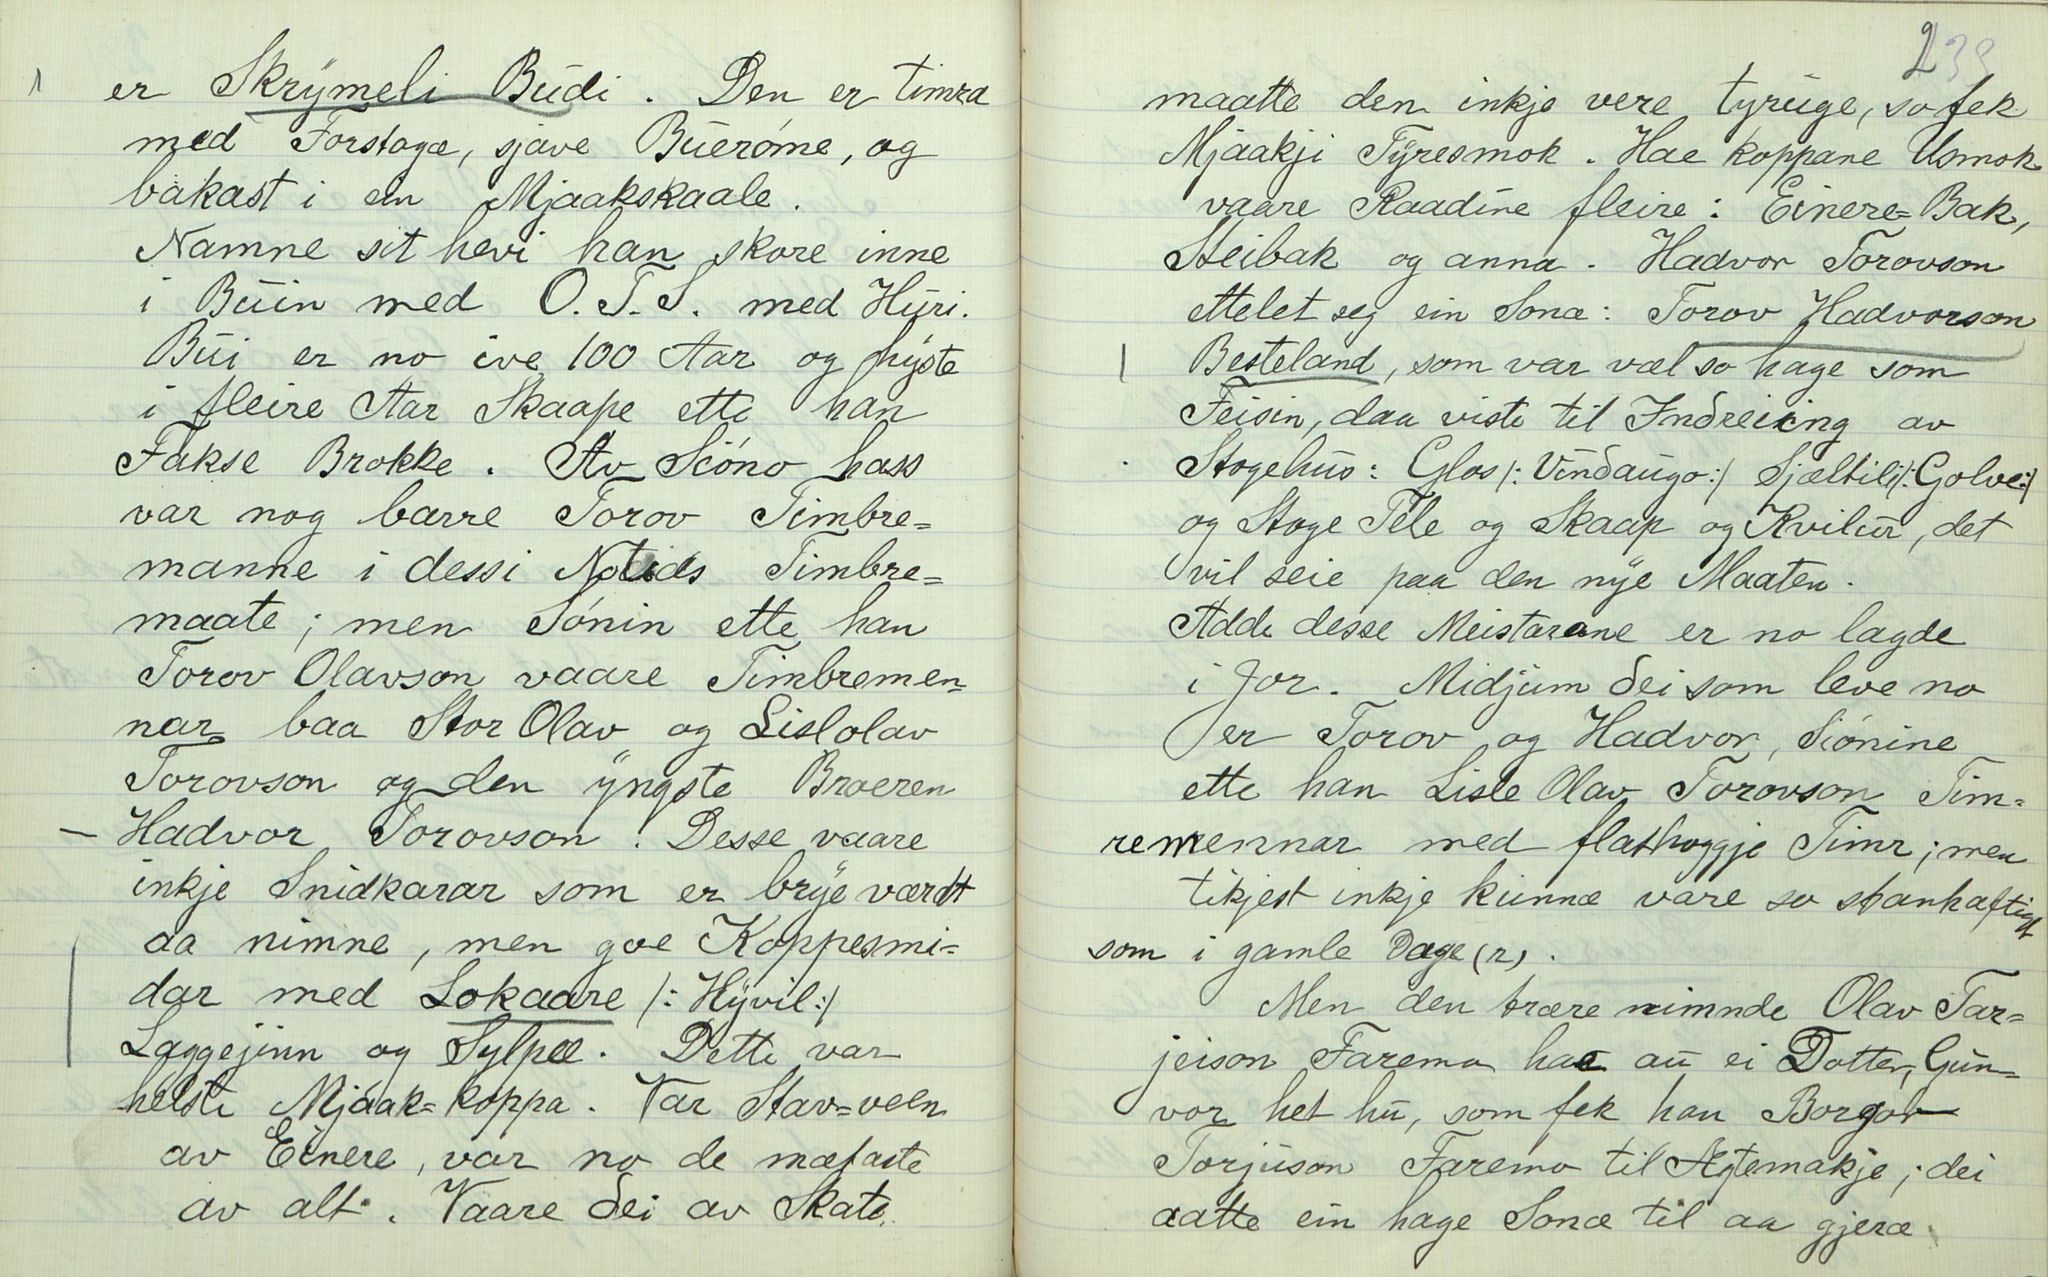 er Skrymeli Budi. Den er timra
med Forstogæ, sjave Buerøme, og
bakast i ein Mjaakskaale.
Namne sit hevi han skore inne
i Buin med O. T. S. med Huri.
Bui er no ive 100 Aar og hyste
i fleire Aar Skaape ette han
Fakse Brokke. Av Siøno hass
var nog barre Torov Timbre=
manne i dessi Notids Timbre=
maate; men Sønin ette han
Torov Olavson vaare Timbremen=
nar baa Stor Olav og Lislolav
Torovson og den yngste Broeren
Hadvor Torovson. Desse vaare
inkje Snidkarar som er brye værdt
aa nimne, men goe Koppesmi=
dar med Lokaare /: Hyvil :/
Laggejinn og Sylpæ. Dette var
helste Mjaak=koppa. Var Stav=veen
av Einere, var no de mæfaste
av alt. Vaare dei av Skate
233
maatte den inkje vere tyruge, so fek
Mjaakji Tyresmok. Hae koppane Usmok
vaare Raadine fleire: Einere=Bak,
Steibak og anna. Hadvor Torovson
ettelet seg ein Sonæ: Torov Hadvorson
Besteland, som var væl so hage som
Feisin, daa viste til Indreiing av
Stogehus: Glos /: Vindaugo :/ Sjæltili /: Golve :/
og Stoge Tele og Skaap og Kvilur, det
vil seie paa den nye Maaten.
Adde desse Meistarane er no lagde
i Jor. Midjum dei som leve no
er Torov og Hadvor, Siønine
ette han Lisle Olav Torovson Tim=
remennar med flathoggje Timr; men
tikjest inkje kunnæ vare so stanhaftigt
som i gamle Dage(r).
Men den trære nimnde Olav Tar=
jeison Faremo hae au ei Dotter, Gun=
vor het hu, som fek han Borgar
Torjuson Faremo til Ægtemakje; dei
aatte ein hage Sonæ til aa gjeræ